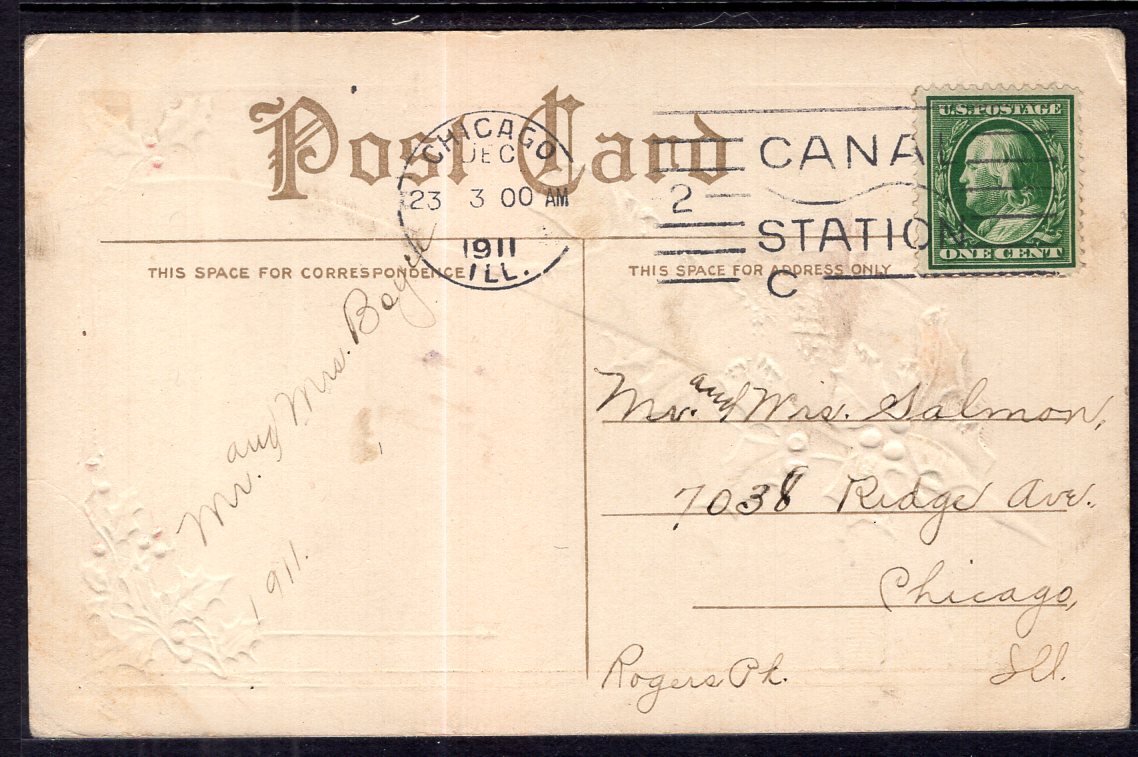 Post Card
CHICAGO
DEC
23 3 00 AM
1911
ILL.
2
CANAL
STATION
C
U.S. POSTAGE
ONE CENT
THIS SPACE FOR CORRESPONDENCE
THIS SPACE FOR ADDRESS ONLY
Mr. and Mrs.
1911.
Mr. and Mrs. Salmon,
7038 Ridge Ave.
Chicago,
Rogers Pk. Ill.